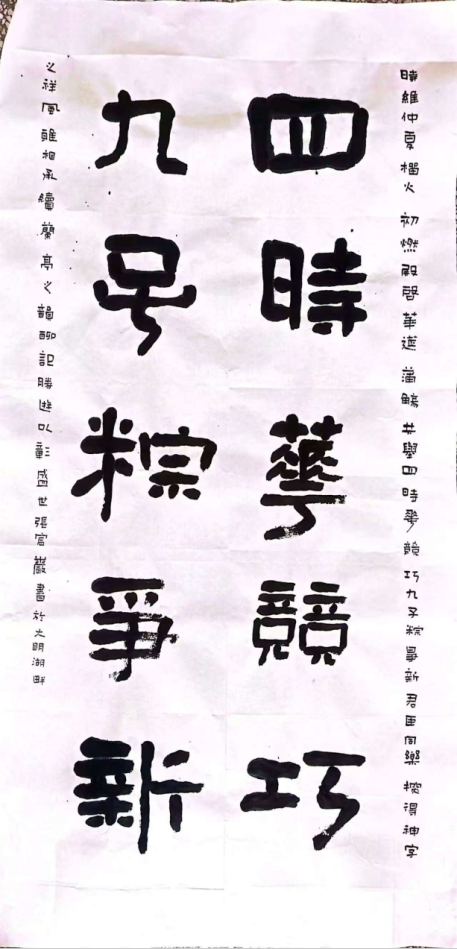 時維仲夏榴火初燃殿啓華筵蒲觴共舉四時華競巧九子粽爭新君臣同樂探得神字
四時華競巧
九子粽爭新
之祥風雖相承續蘭亭之韻聊記勝遊以彰盛世張官巖書於大明湖畔